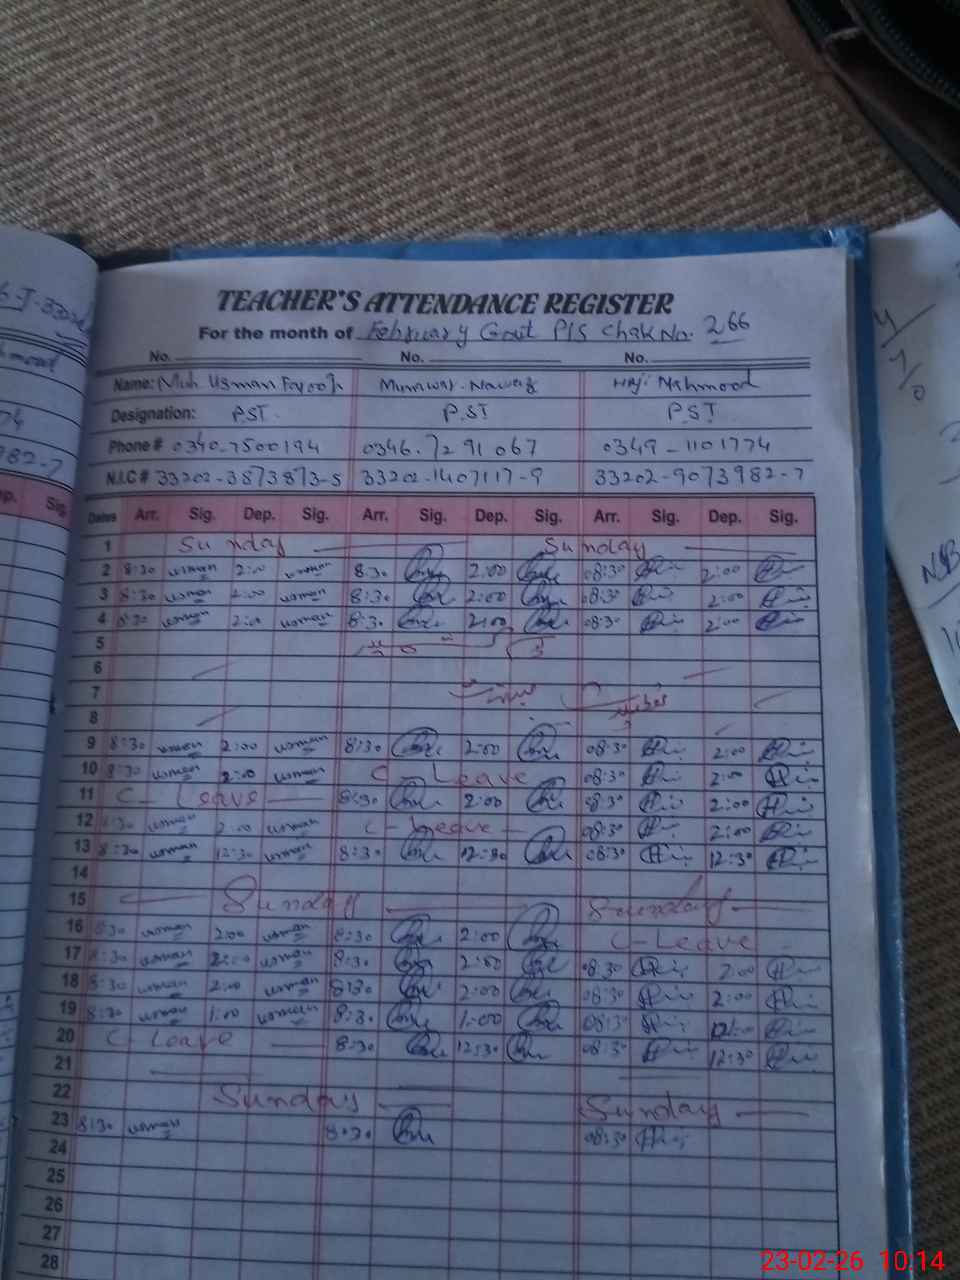 TEACHER'S ATTENDANCE REGISTER
For the month of February Govt P/S Chak No. 266
No. No. No.
Name: Muh Usman Munawar Nawaz Haji Mahmood
Designation: PST. P.ST P.ST
Phone # 0340-7500194 0346-7291067 0349-1101774
N.I.C # 33202-3873873-5 33202-1407117-9 33202-9073982-7
Dates Arr. Sig. Dep. Sig. Arr. Sig. Dep. Sig. Arr. Sig. Dep. Sig.
1 Sunday Sunday
2 8:30 usman 2:00 usman 8:30 2:00 08:30 2:00
3 8:30 usman 2:00 usman 8:30 2:00 08:30 2:00
4 8:30 usman 2:00 usman 8:30 2:00 08:30 2:00
5
6
7
8
9 8:30 usman 2:00 usman 8:30 2:00 08:30 2:00
10 8:30 usman 2:00 usman C- Leave 08:30 2:00
11 C- Leave 8:30 2:00 08:30 2:00
12 8:30 usman 2:00 usman C- Leave 08:30 2:00
13 8:30 usman 12:30 usman 8:30 12:30 08:30 12:30
14
15 Sunday Sunday
16 8:30 usman 2:00 usman 8:30 2:00 C- Leave
17 8:30 usman 2:00 usman 8:30 2:00 08:30 2:00
18 8:30 usman 2:00 usman 8:30 2:00 08:30 2:00
19 8:30 usman 1:00 usman 8:30 1:00 08:30
20 C- Leave 8:30 12:30 08:30 12:30
21
22 Sunday Sunday
23 8:30 usman 8:30 08:30
24
25
26
27
28
23-02-26 10:14